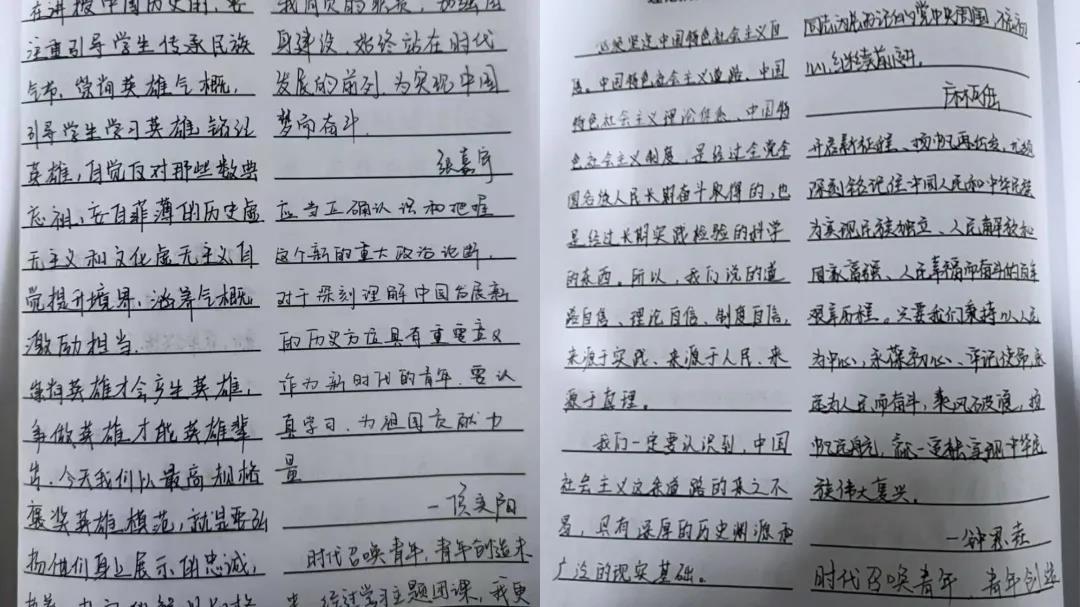 在讲授中国历史时，要
注重引导学生传承民族
气节、崇尚英雄气概，
引导学生学习英雄、铭记
英雄，自觉反对那些数典
忘祖、妄自菲薄的历史虚
无主义和文化虚无主义自
觉提升境界、涵养气概
激励担当.
崇尚英雄才会产生英雄，
争做英雄才能英雄辈
出，今天我们以最高规格
褒奖英雄模范，就是要弘
扬他们身上展示的忠诚、
身建设，始终站在时代
发展的前列，为实现中国
梦而奋斗.
张嘉宇
应当正确认识和把握
这个新的重大政治论断，
对于深刻理解中国发展新
的历史方位具有重要意义
作为新时代的青年，要认
真学习，为祖国贡献力
量
时代召唤青年，青年创造未
来，经过学习主题团课，我更
这就是说中国特色社会主义
中国特色社会主义道路、中国
特色社会主义理论体系、中国特
色社会主义制度，是经过全党全
国各族人民长期奋斗取得的，也
是经过长期实践检验的科学
的东西。所以，我们说的道
路自信、理论自信、制度自信，
来源于实践、来源于人民、来
源于真理。
我们一定要认识到，中国
社会主义这条道路的来之不
易，具有深厚的历史渊源和
广泛的现实基础。
心，继续前进.
开启新征程、扬帆再出发，
深刻铭记住中国人民和中华民族
为实现民族独立、人民解放和
国家富强、人民幸福而奋斗的百年
艰辛历程。只要我们秉持以人民
为中心，永葆初心、牢记使命，永
远为人民而奋斗，乘风破浪，扬
帆远航，
族伟大复兴。
时代召唤青年，青年创造